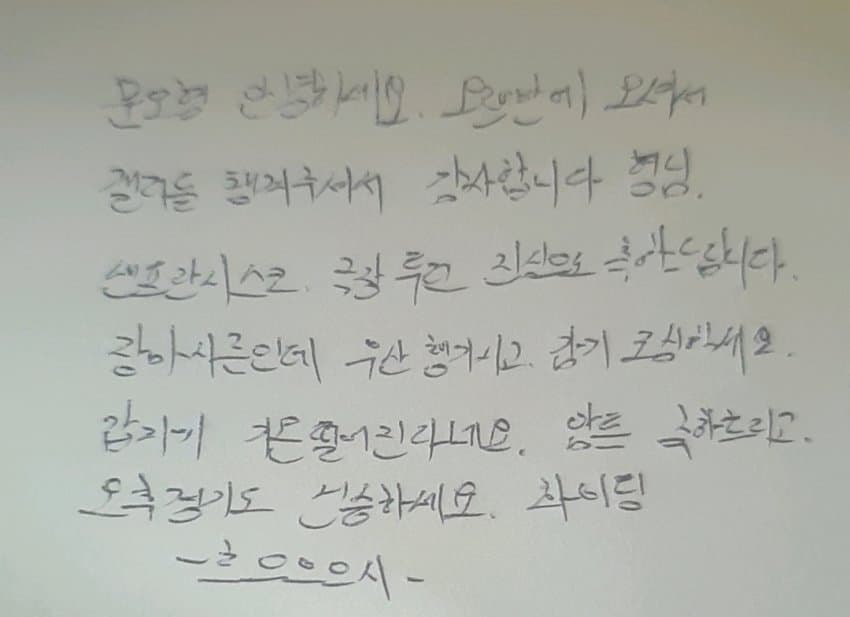 문오형 안녕하세요. 오랜만에 오셔서
결과를 챙겨주셔서 감사합니다 형님.
샌프란시스코. 극장 루건 진심으로 축하드립니다.
장마시즌인데 우산 챙기시고. 감기 조심하세요.
갑자기 기온 떨어진다네요. 암튼 축하드리고.
오후경기도 건승하세요. 화이팅